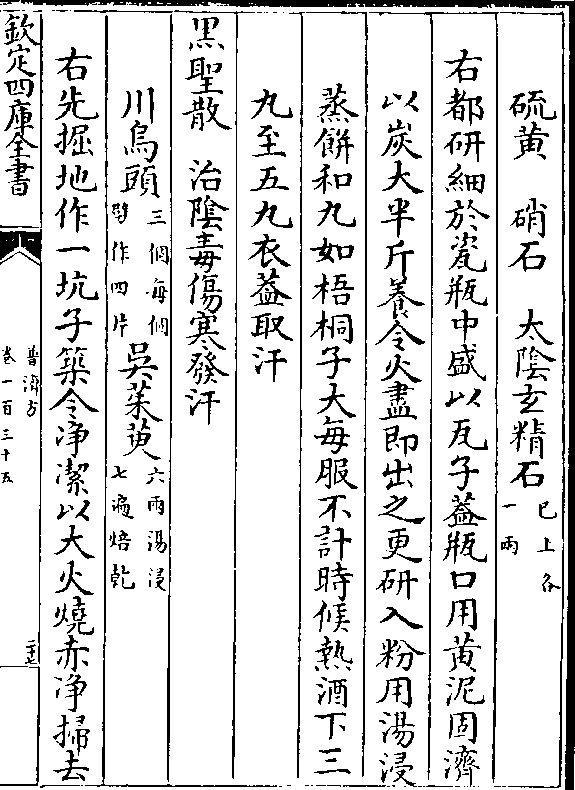 硫黄　硝石　太陰玄精石已上各一兩
右都研細於瓷瓶中盛以瓦子蓋瓶口用黄泥固濟
以炭大半斤養令火盡即出之更研入粉用湯浸
蒸餅和丸如梧桐子大每服不計時候熱酒下三
丸至五丸衣葢取汗
黒聖散　治陰毒傷寒發汗
川烏頭三個每個劈作四片　吳茱萸六兩湯浸七遍焙乾
右先掘地作一坑子築令浄潔以大火燒赤浄掃去
欽定四庫全書
普濟方
卷一百三十五